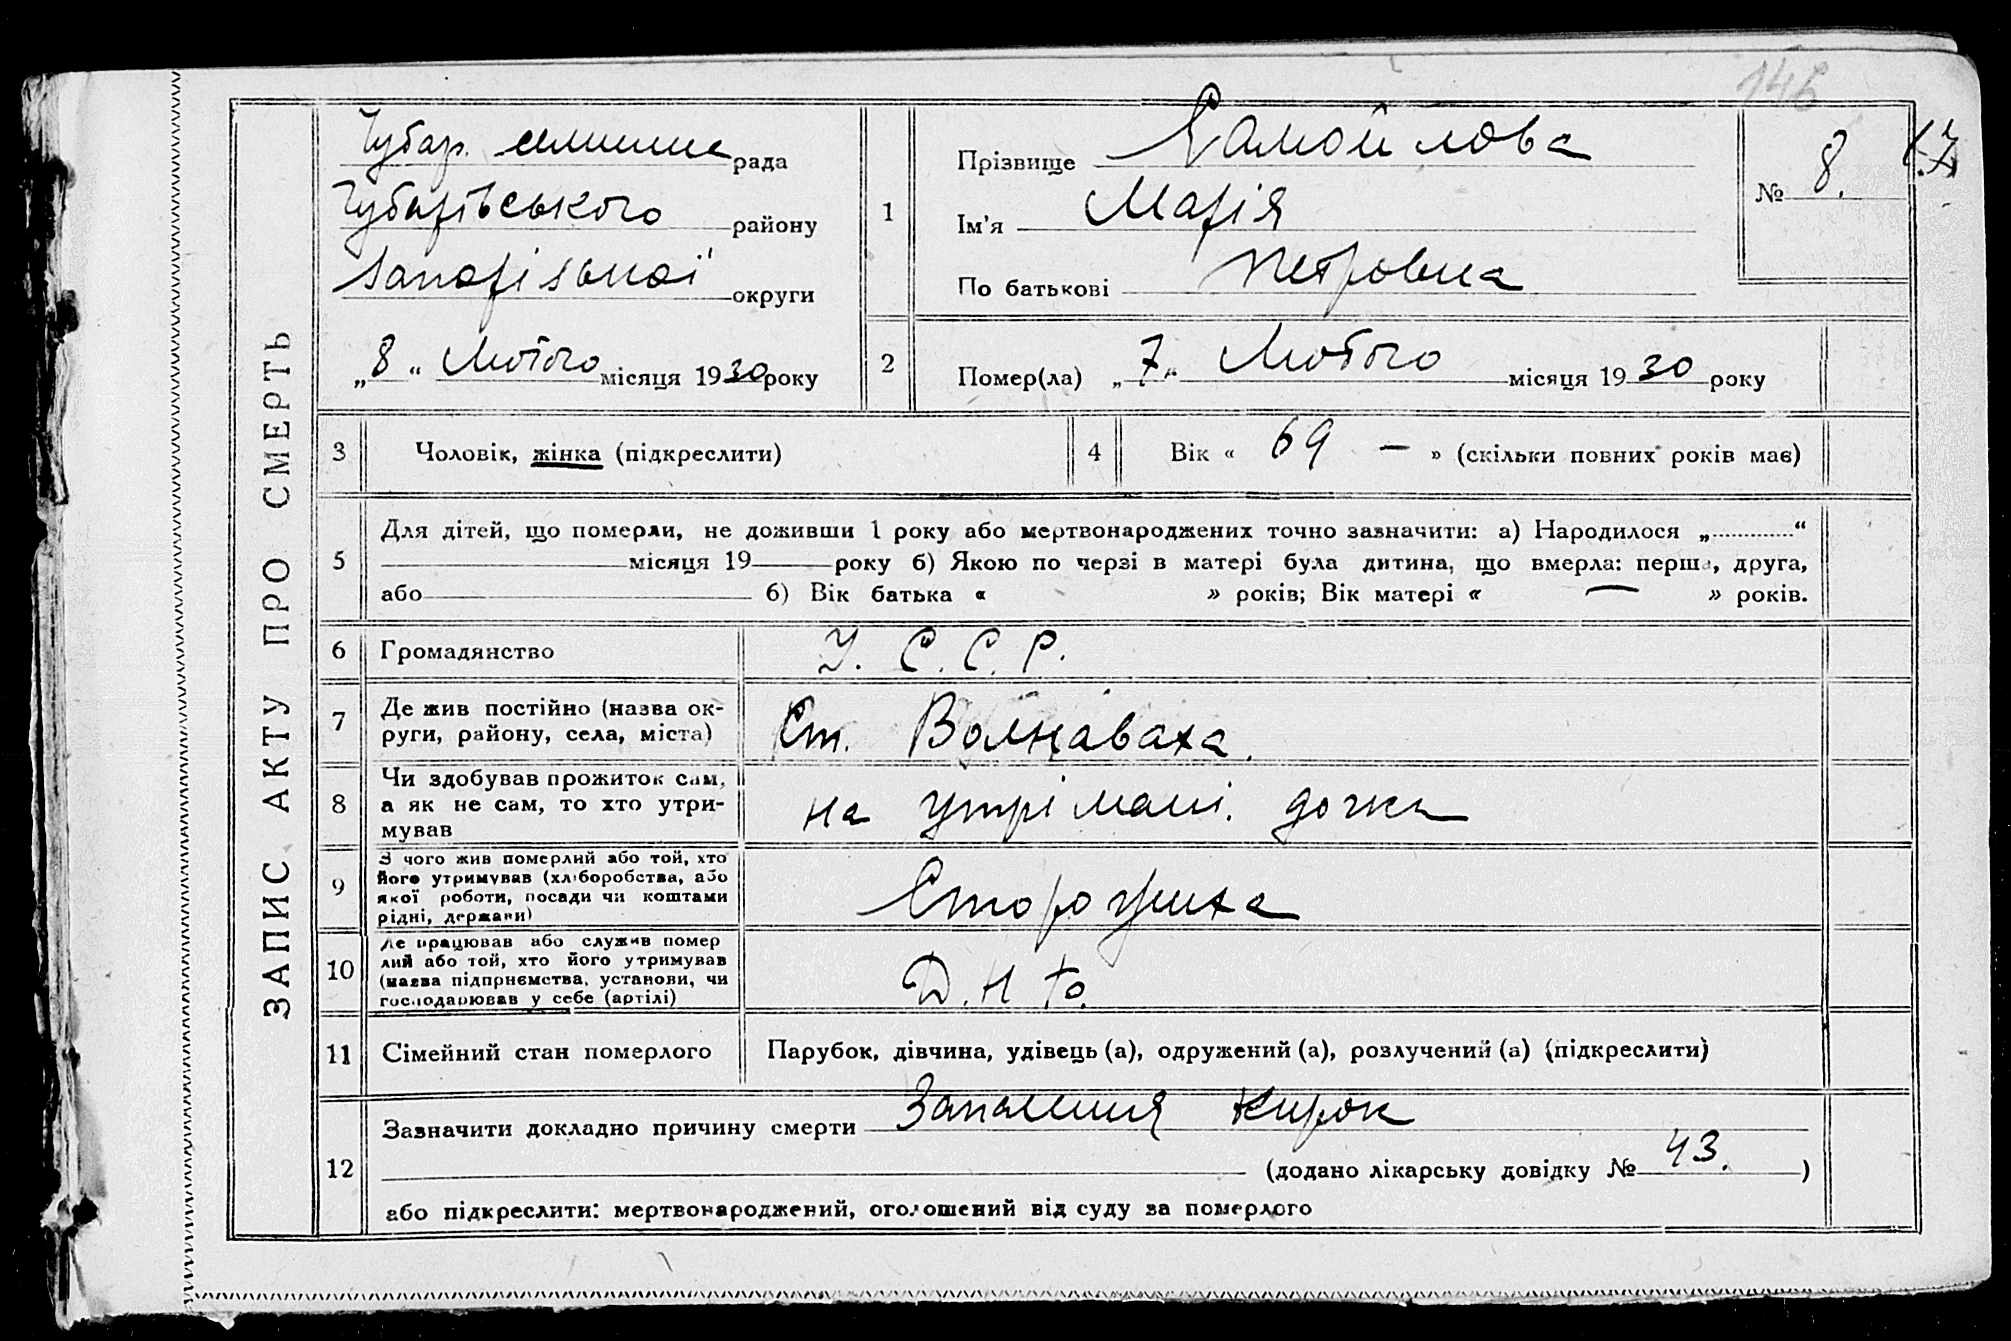 146
ЗАПИС АКТУ ПРО СМЕРТЬ
Чубар. селищна рада
Чубарівського району
Запорізької округи
„8“ Лютого місяця 1930 року
1
Прізвище Самойлова
Ім'я Марія
По батькові Петровна
№ 8.
2
Помер(ла) „7“ Лютого місяця 1930 року
3
Чоловік, жінка (підкреслити)
4
Вік « 69 — » (скільки повних років має)
5
Для дітей, що померли, не доживши 1 року або мертвонароджених точно зазначити: а) Народилося „ “
місяця 19 року б) Якою по черзі в матері була дитина, що вмерла: перша, друга,
або б) Вік батька « » років; Вік матері « — » років.
6
Громадянство
У. С. С. Р.
7
Де жив постійно (назва ок-
руги, району, села, міста)
Ст. Волноваха
8
Чи здобував прожиток сам,
а як не сам, то хто утри-
мував
на утрімані. дочки
9
З чого жив померлий або той, хто
його утримував (хліборобства, або
якої роботи, посади чи коштами
рідні, держави)
Сторожиха
10
Де працював або служив помер
лий або той, хто його утримував
(назва підприємства, установи, чи
господарював у себе (артілі)
11
Сімейний стан померлого
Парубок, дівчина, удівець (а), одружений (а), розлучений (а) (підкреслити)
12
Зазначити докладно причину смерти Запаления
(додано лікарську довідку № 43. )
або підкреслити: мертвонароджений, оголошений від суду за померлого